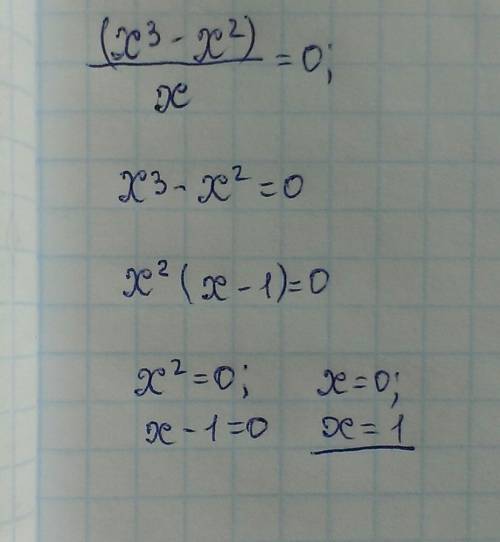 (x³ - x²)
/ x = 0;
x³ - x² = 0
x² (x - 1) = 0
x² = 0; x = 0;
x - 1 = 0 x = 1